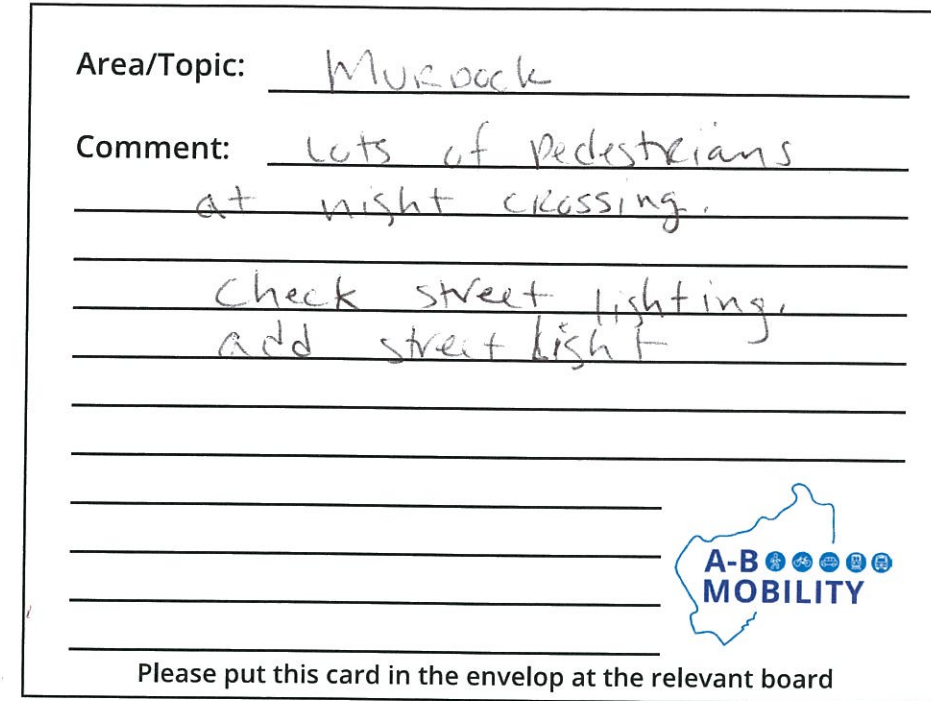 Area/Topic: Murdock
Comment: Lots of Pedestrians
at night crossing.
Check street lighting,
add street light
A-B
MOBILITY
Please put this card in the envelop at the relevant board